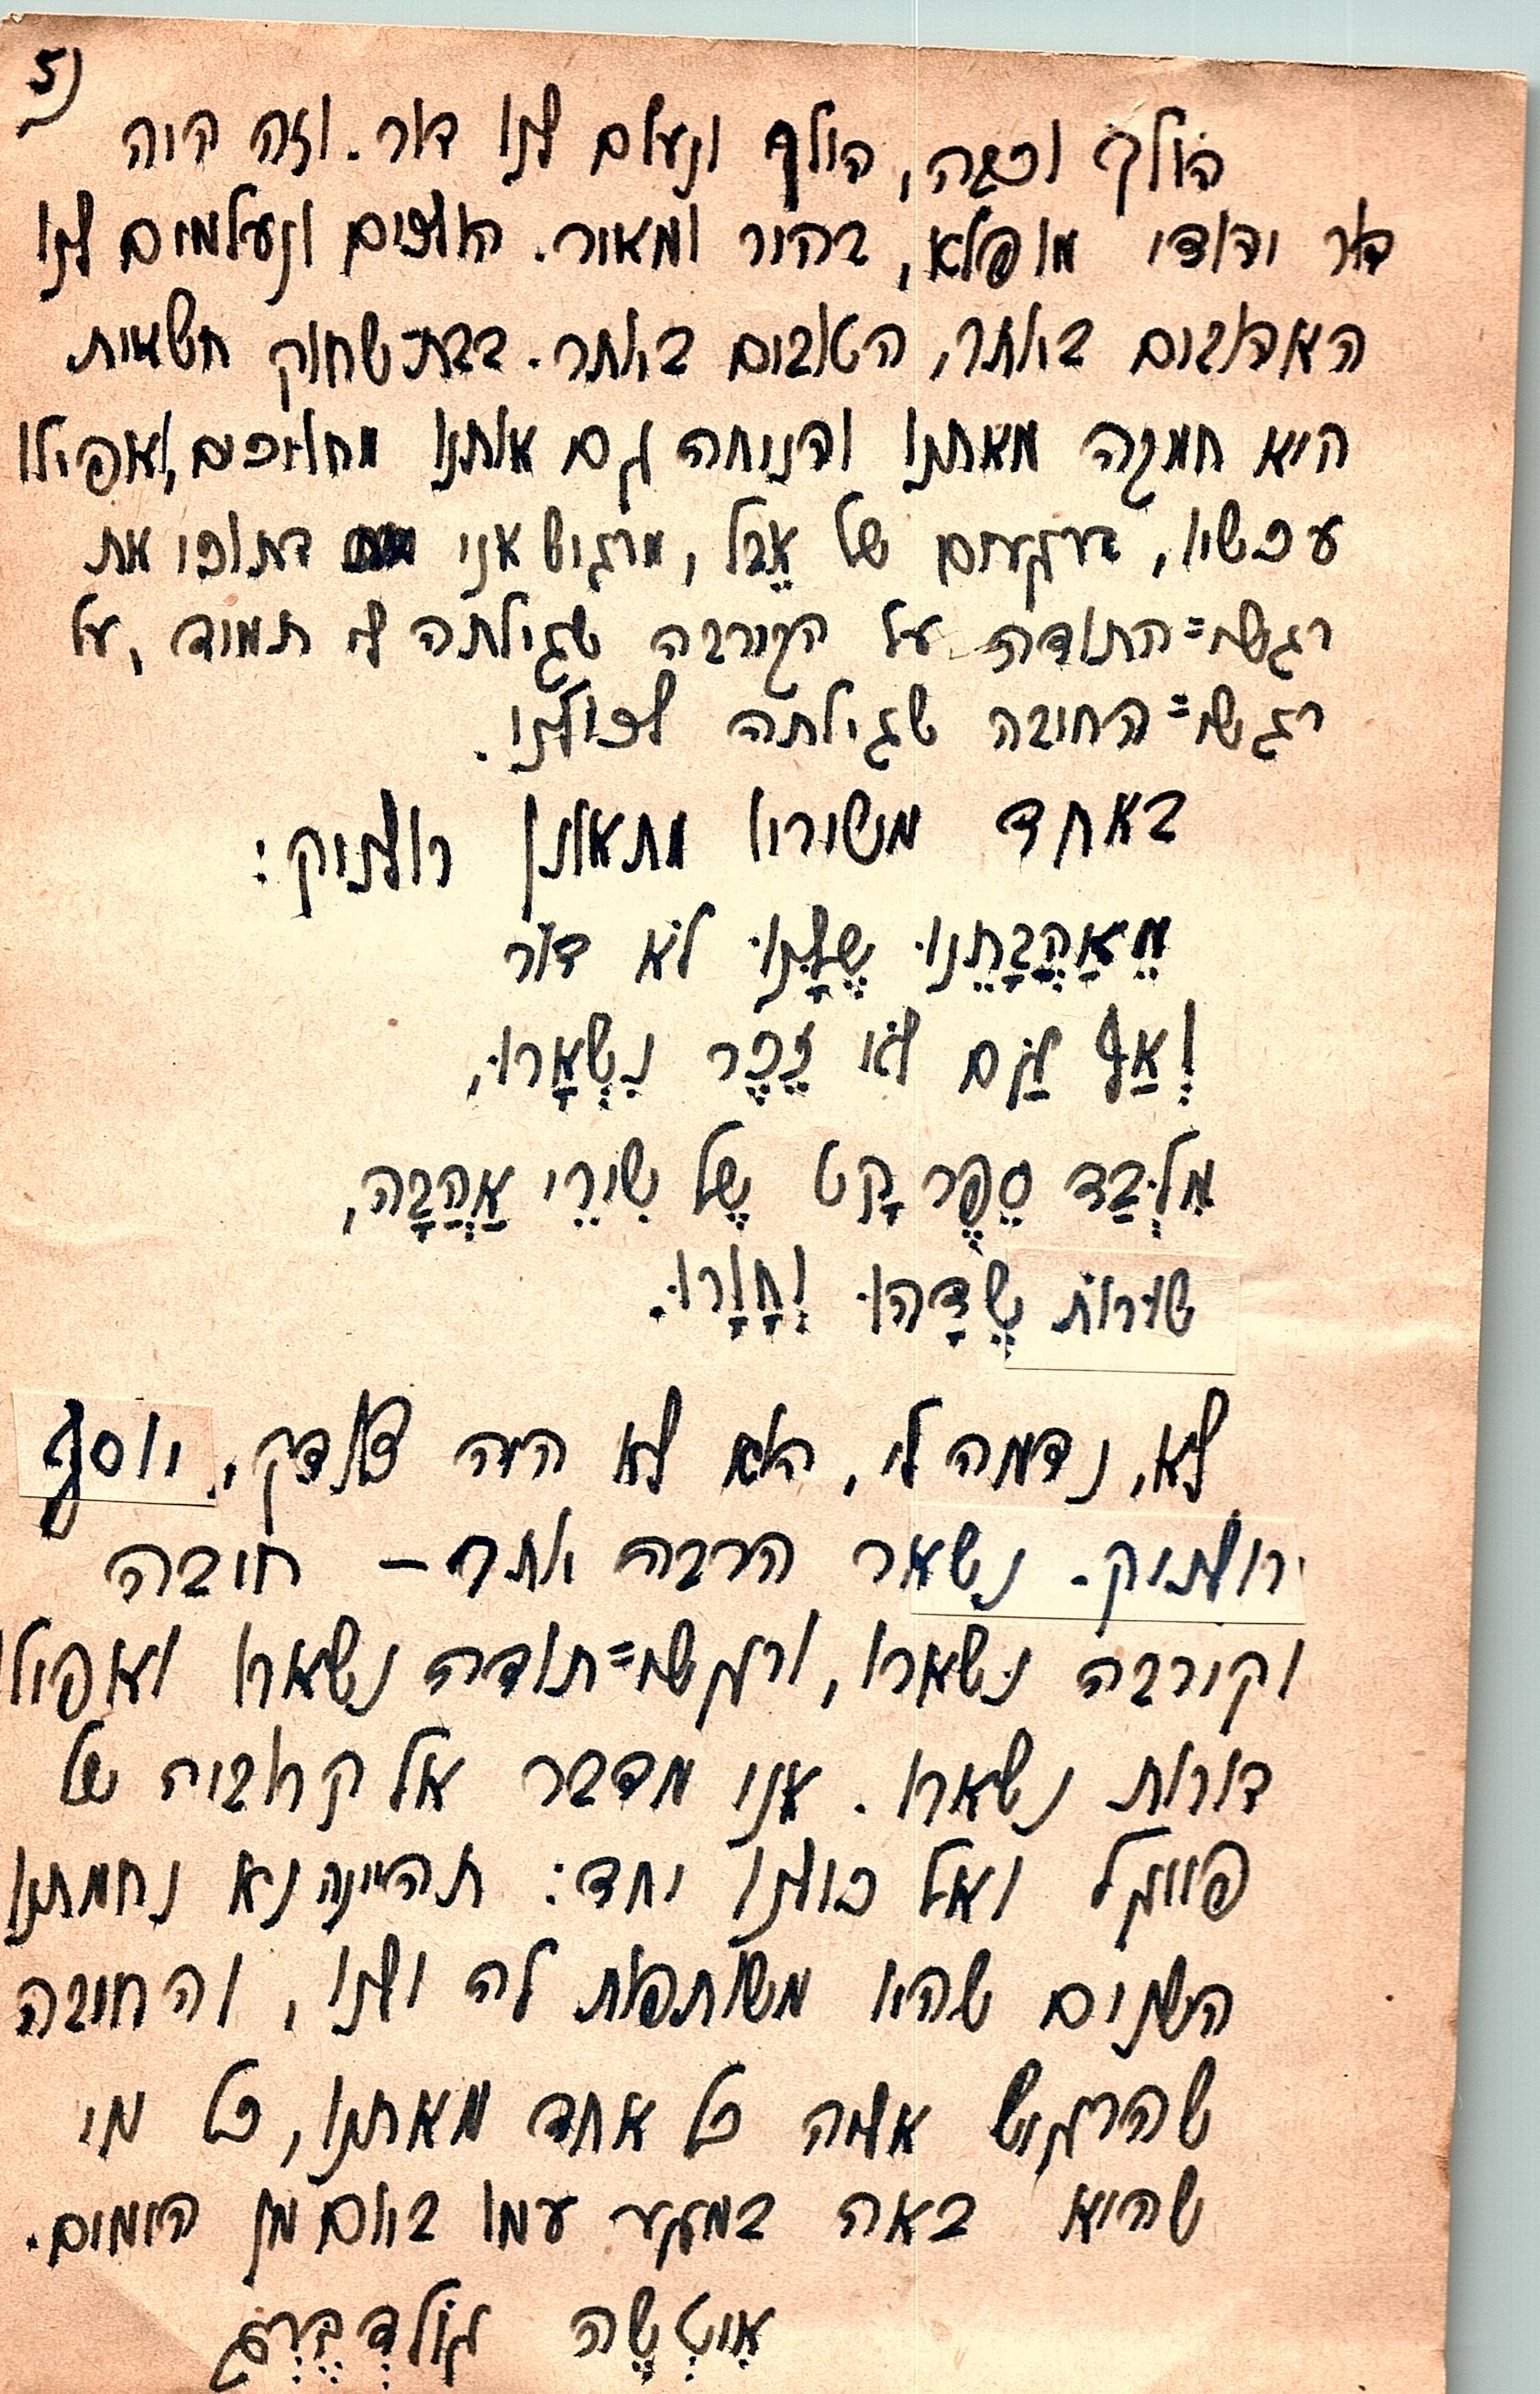 5)
הולך וכבה, הולך ונעלם לנו דור. וזה היה
דור ידודי מופלא, בהיר ומאור. הולכים ונעלמים לנו
האהובים ביותר, הטובים ביותר. בבת שחוק חשאית
היא חמקה מאתנו והניחה גם אותנו מחויכים, ואפילו
עכשיו, ברגעים של אֵבֶל, מרגיש אני בתוכי את
רגש=התודה על הקירבה שגילתה לי תמיד, על
רגש=החיבה שגילתה לכולנו.
באחד משיריו מתאונן רולניק:
מֵאַהֲבָתֵנוּ שֶׁלָּנוּ לֹא דוֹר
וְאַף גַּם לֹא זֵכֶר נִשְׁאָרוּ,
מִלְּבַד סֵפֶר קָט שֶׁל שִׁירֵי אַהֲבָה,
שׁוּרוֹת שֶׁדָּהוּ וְחָוָרוּ.
לא, נדמה לי, הוא לא היה צודק, יוסף
רולניק. נשאר הרבה יותר – חיבה
וקירבה נשארו, ורגש=תודה נשארו ואפילו
דורות נשארו. אני מדבר אל קרוביה של
פייגל ואל כולנו יחד: תהיינה נא נחמתנו
השנים שהיו משותפות לה ולנו, והחיבה
שהרגיש אליה כל אחד מאתנו, כל מי
שהיא באה במגע עמו ביום מן הימים.
אִיטְשֶׁה גוֹלְדְבֶּרְג